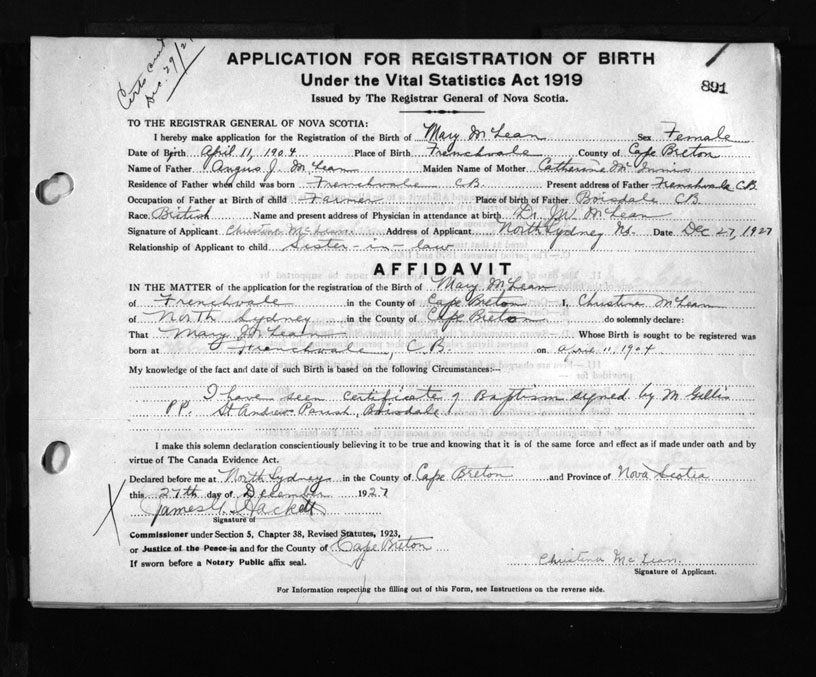 Certs cut
Dec. 29/27
APPLICATION FOR REGISTRATION OF BIRTH
Under the Vital Statistics Act 1919
891
Issued by The Registrar General of Nova Scotia.
TO THE REGISTRAR GENERAL OF NOVA SCOTIA:
I hereby make application for the Registration of the Birth of Mary McLean Sex Female
Date of Birth April 11, 1904 Place of Birth Frenchvale County of Cape Breton
Name of Father Angus J. McLean Maiden Name of Mother Catherine McInnis
Residence of Father when child was born Frenchvale C.B. Present address of Father Frenchvale C.B.
Occupation of Father at Birth of child Farmer Place of birth of Father Boisdale C.B.
Race British Name and present address of Physician in attendance at birth Dr. J.W. McLean
Signature of Applicant Christina McLean Address of Applicant North Sydney N.S. Date Dec 27, 1927
Relationship of Applicant to child Sister-in-law
AFFIDAVIT
IN THE MATTER of the application for the registration of the Birth of Mary McLean
of Frenchvale in the County of Cape Breton I, Christina McLean
of North Sydney in the County of Cape Breton do solemnly declare:
That Mary McLean Whose Birth is sought to be registered was
born at Frenchvale, C.B. on April 11 1904
My knowledge of the fact and date of such Birth is based on the following Circumstances:—
I have seen Certificate of Baptism signed by M Gillis
P.P. St Andrew Parish, Boisdale
I make this solemn declaration conscientiously believing it to be true and knowing that it is of the same force and effect as if made under oath and by
virtue of The Canada Evidence Act.
Declared before me at North Sydney in the County of Cape Breton and Province of Nova Scotia
this 27th day of December 1927
James G. Hackett
Signature of
Commissioner under Section 5, Chapter 38, Revised Statutes, 1923,
or Justice of the Peace in and for the County of Cape Breton
If sworn before a Notary Public affix seal.
Christina McLean
Signature of Applicant.
For Information respecting the filling out of this Form, see Instructions on the reverse side.